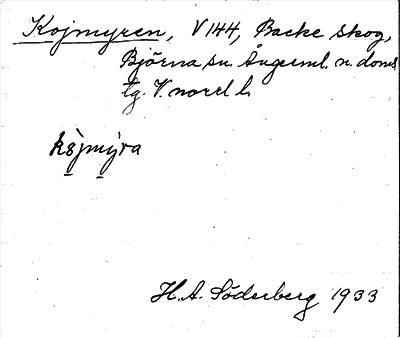 Kojmyren, V 144, Backe skog,
Björna sn. Ångerml. n. doms.
tg. V. norrl l.
kòjmýra
H. A. Söderberg 1933